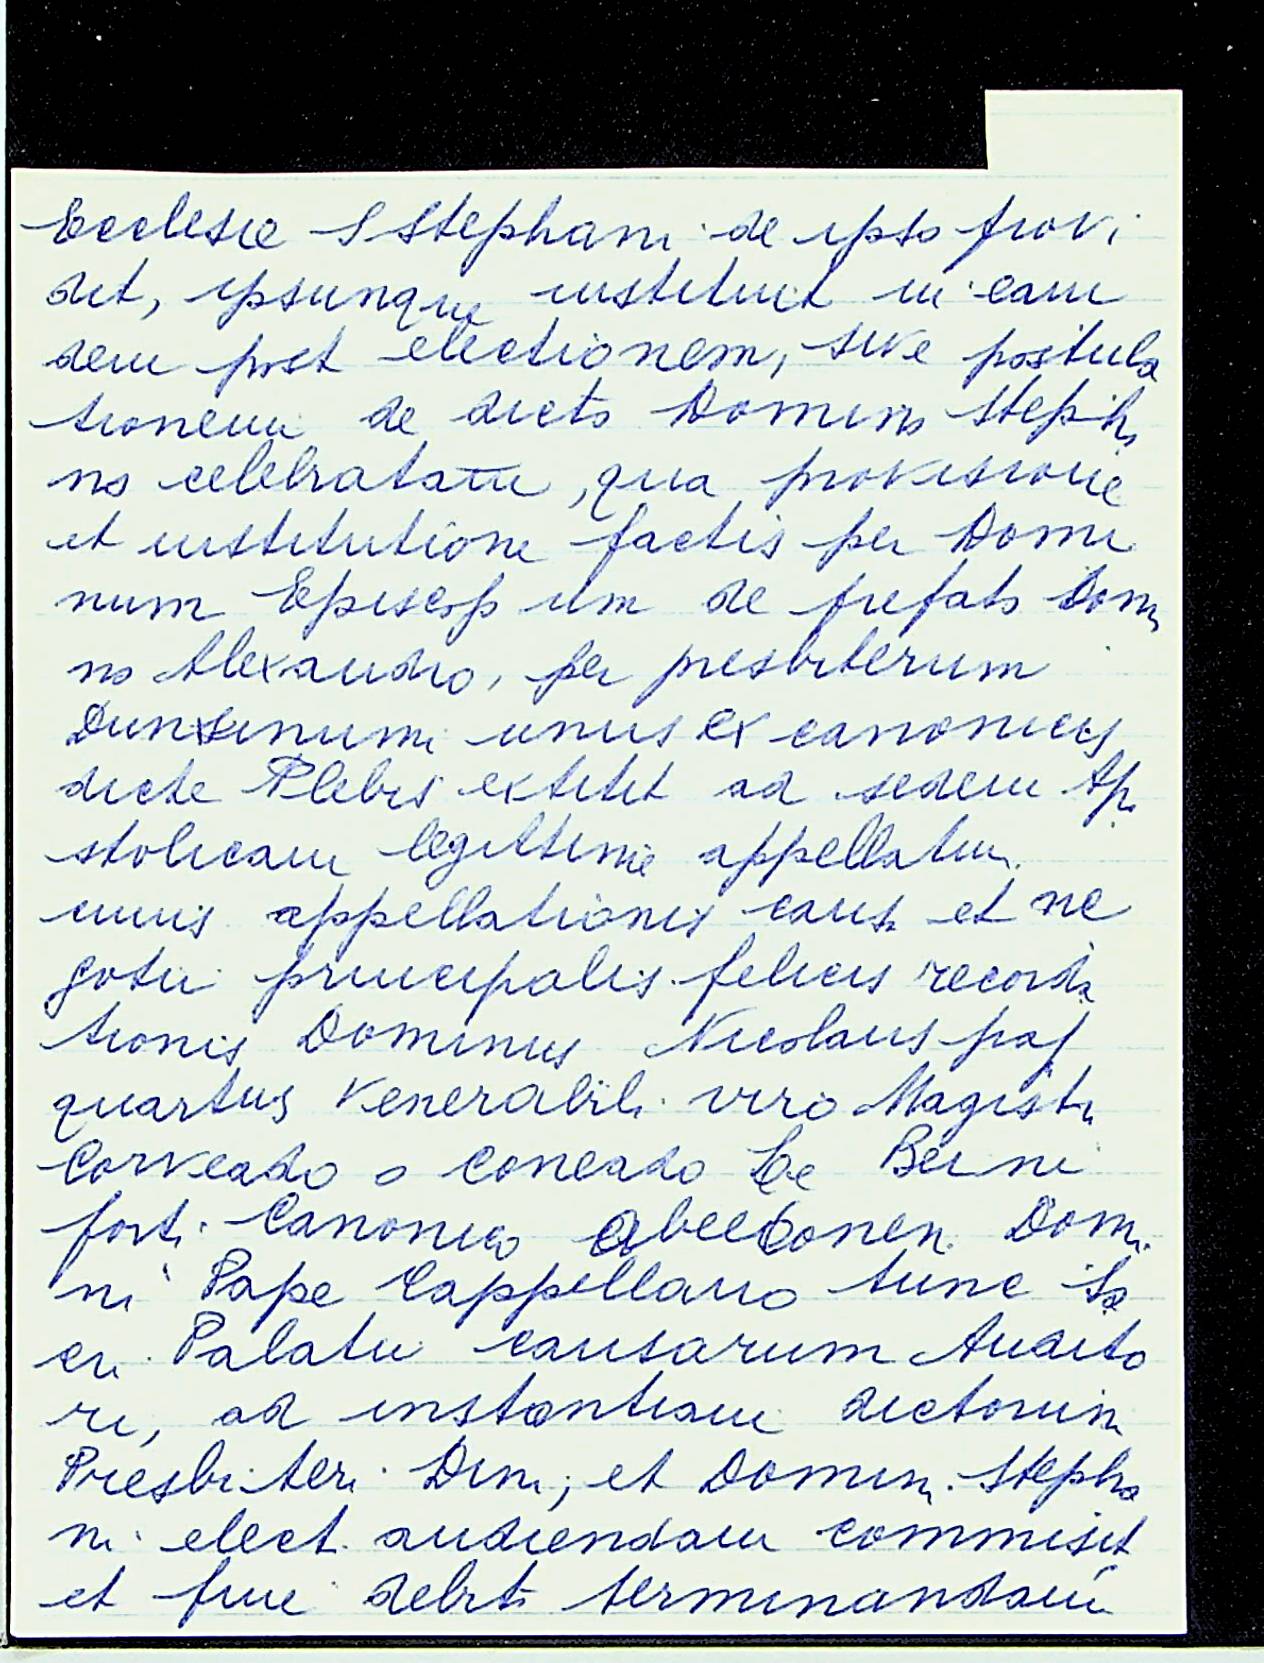 Ecclesie S Stephani de ipso provi
det, ipsunque instituit in ean
dem post electionem, sive postula
tionem de dicto Domino Steph
no celebratam, qua provisione
et institutione factis per Domi
num Episcopum de prefato Domi
no Alexandro, per presbiterum
unus ex canonicis
dicte Plebis extitit ad sedem Apo
stolicam legittime appellatum
cuius appellationis causa et ne
gotii principalis felicis recorda
tionis Dominus Nicolaus pap
quartus Venerabili viro Magistr
Corveado o Coneado De
fort. Canonico Domi
ni Pape Cappellano tunc Sa
cri Palatii causarum Audito
ri, ad instantiam dictorum
Presbiteri Dini, et Domini Stepha
ni elect. audiendam commisit
et fine debito terminandam